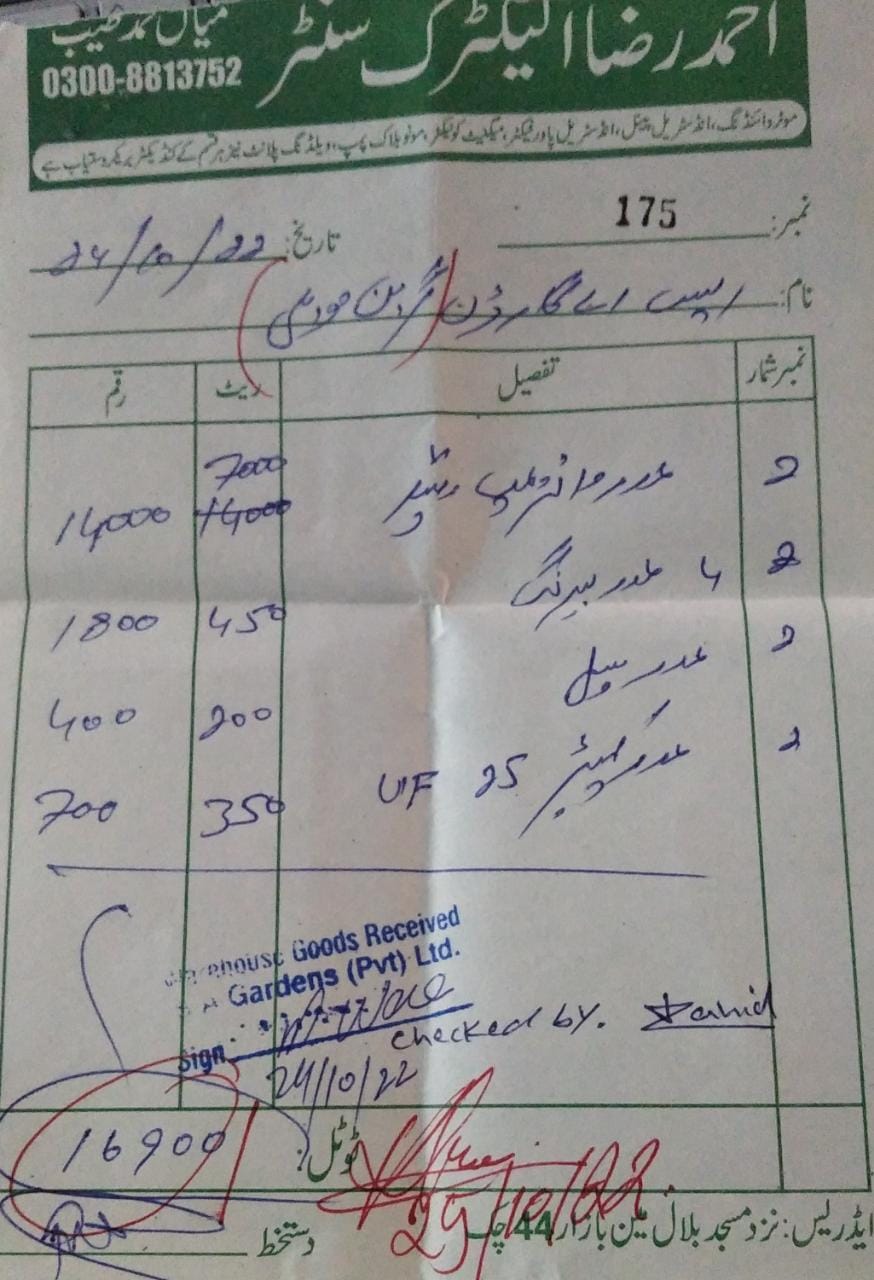 احمد رضا الیکٹرک سنٹر
میاں محمد طیب
0300-8813752
موٹر وائنڈنگ، انڈسٹریل پینل، انڈسٹریل پاور فیکٹر، میگنیٹ کونیکٹر، مونو بلاک پمپ، ویلڈنگ پلانٹ نیز ہر قسم کے کنڈیکٹر بریکر دستیاب ہے
نمبر: 175
تاریخ: 24/10/22
نام: ایس اے گارڈن (گرین
نمبر شمار تفصیل ریٹ رقم
2 عدد وائنڈ پمپ 7000 14000 14000
2 4 عدد بیرنگ 450 1800
2 عدد سیل 200 400
2 عدد UF 25 350 700
Warehouse Goods Received
S A Gardens (Pvt) Ltd.
Sign
checked by. Zahid
24/10/22
ٹوٹل: 16900
25/10/22
دستخط
ایڈریس: نزد مسجد بلال مین بازار 44 چک